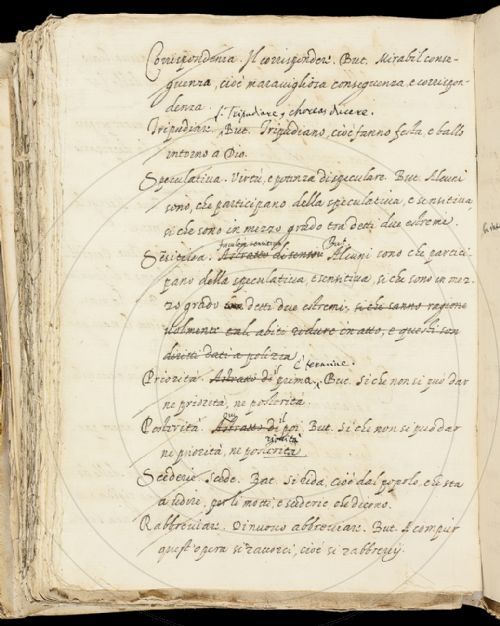 Corrispondenza. Il corrisponder. But. Mirabil conse-
guenza, cioè maravigliosa conseguenza, e corrispon-
denza.
Tripudiare, choreas ducere.
Tripudiar. But. Tripudiano, cioè fanno festa, e ballo
intorno a Dio.
Speculativa. Virtù, e potenza di speculare. But. Alcuni
sono, che participano della speculativa, e sensitiva,
si che sono in mezzo grado tra detti due estremi.
But.
Sensitiva. Astratto di senson Alcuni sono che partici-
pano della speculativa e sensitiva, si che sono in mez-
zo grado detti due estremi, si che sanno
abiti ridure in atto, e questi son
diritti dati a polizia
È termine.
Priorità. Astratto di prima. But. Si che non si può dar
ne priorità, ne posterità.
il
Posterità. Astratto di poi. But. Si che non se può dar
ne priorità, ne posterità.
Scederie. Scede. But. Si dida, cioè dal popolo, che sta
a udire, per li motti, e scederie che dicono.
Rabbreviar. Di nuovo abbreviar. But. A compir
quest'opera si raunci, cioè si rabbrevij.